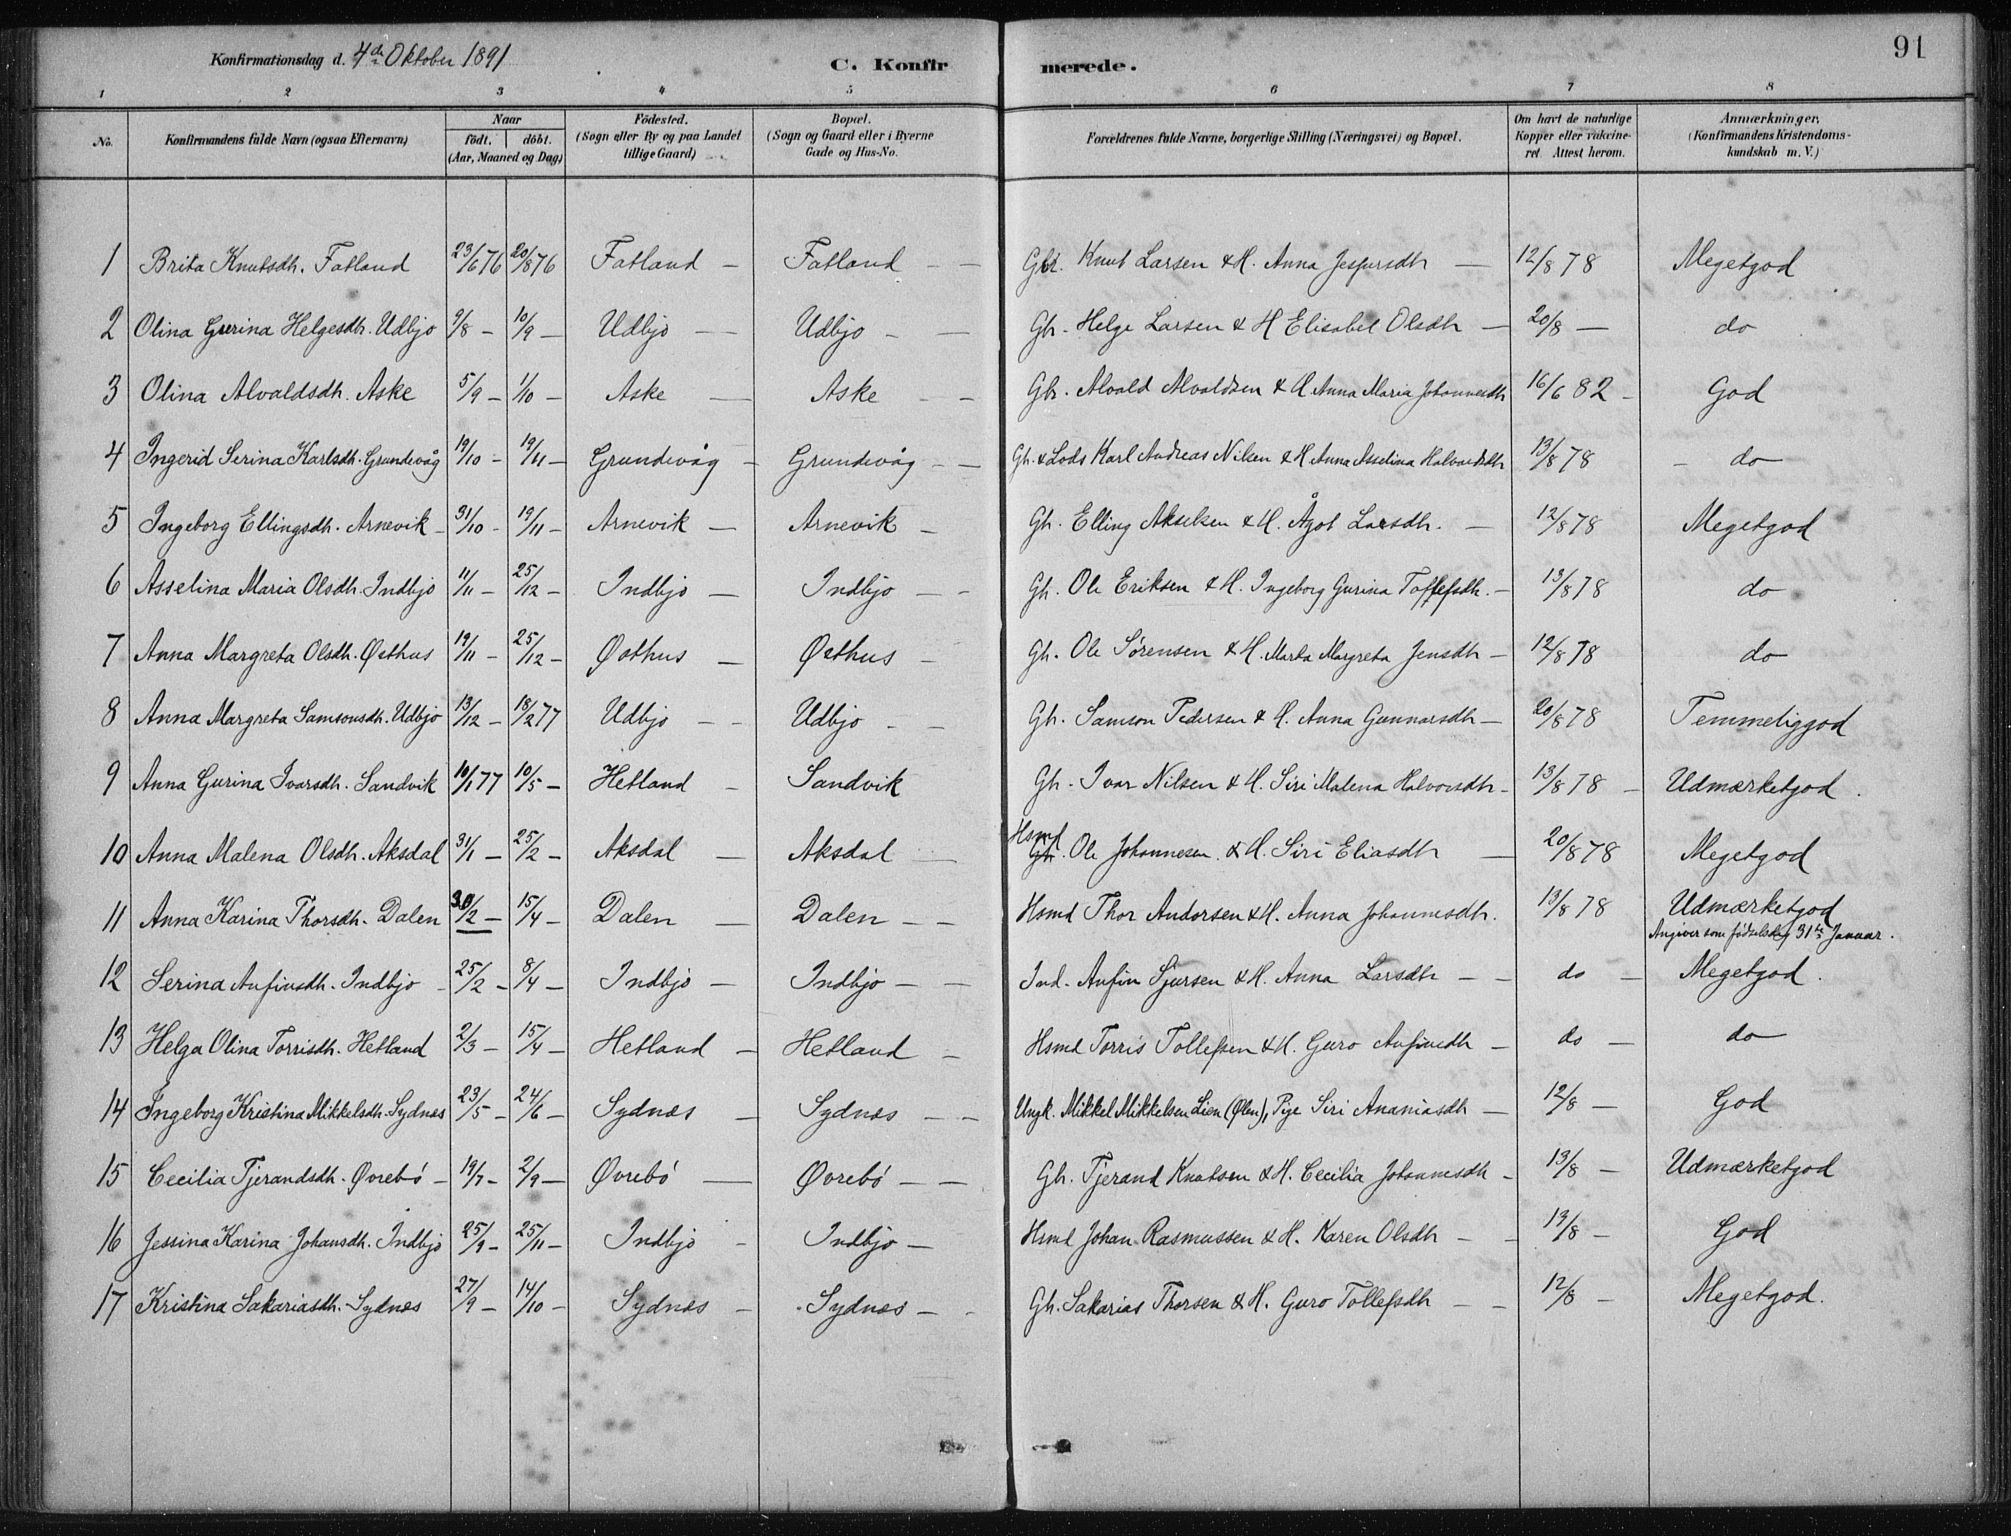 Konfirmationsdag d. 4de Oktober 1891 C. Konfirmerede. 91
1 2 3 4 5 6 7 8
No. Konfirmandens fulde Navn (ogsaa Efternavn) Naar födt. döbt. (Aar, Maaned og Dag) Födested. (Sogn eller By og paa Landet tillige Gaard) Bopæl. (Sogn og Gaard eller i Byerne Gade og Hus-No. Forældrenes fulde Navne, borgerlige Stilling (Næringsvei) og Bopæl. Om havt de naturlige Kopper eller vakcineret. Attest herom. Anmærkninger, (Konfirmandens Kristendomskundskab m. V.)
1 Brita Knutsdh. Fatland 23/6 76 20/8 76 Fatland — Fatland — — Gbr. Knut Larsen & H. Anna Jespersdh — 12/8 78 Megetgod
2 Olina Gurina Helgesdh. Udbjo 9/8 — 10/9 — Udbjo — Udbjo — — Gb. Helge Larsen & H Elisabet Olsdh — 20/8 — do
3 Olina Alvaldsdh. Aske 5/9 — 1/10 — Aske — Aske — — Gb. Alvald Alvaldsen & H Anna Maria Johannesdh 16/6 82 — God
4 Ingerid Serina Karlsdh. Grundevåg 19/10 — 19/11 — Grundevåg — Grundevåg — — Gb. & Lods Karl Andreas Nilsen & H Anna Asselina Halvardsdh 13/8 78 — do
5 Ingeborg Ellingsdh. Arnevik — 31/10 — 19/11 — Arnevik — Arnevik — Gb. Elling Akselsen & H. Ågot Larsdh. — 12/8 78 Megetgod
6 Asselina Maria Olsdh. Indbjo 11/11 — 25/12 — Indbjo — Indbjo — — Gb. Ole Eriksen & H. Ingeborg Gurina Tollefsdh. — 13/8 78 do
7 Anna Margreta Olsdh. Østhus 19/11 — 25/12 — Østhus — Østhus — Gb. Ole Sørensen & H. Marta Margreta Jensdh — 12/8 78 do
8 Anna Margreta Samsonsdh. Udbjo 13/12 — 18/2 77 Udbjo — — Udbjo — — Gb. Samson Pedersen & H. Anna Gunnarsdh — 20/8 78 Temmeliggod
9 Anna Gurina Ivarsdh. Sandvik 10/1 77 10/5 — Hetland — Sandvik Gb. Ivar Nilsen & H. Siri Malena Halvorsdh — 13/8 78 — Udmærketgod.
10 Anna Malena Olsdh. Aksdal 31/1 — 25/2 — Aksdal — Aksdal — Hsmd Gb. Ole Johannesen & H. Siri Eliasdh — 20/8 78 Megetgod
11 Anna Karina Thorsdh. Dalen 30/2 — 15/4 — Dalen — Dalen — — Hsmd Thor Andorsen & H. Anna Johannesdh. 13/8 78 Udmærketgod
Angiver som fødselsdag 31te Januar.
12 Serina Anfinsdh. Indbjo — 25/2 — 8/4 — Indbjo — Indbjo — — Ind. Anfin Sjursen & H. Anna Larsdh — — do — Megetgod.
13 Helga Olina Torrisdh. Hetland 2/3 — 15/4 — Hetland — Hetland — Hsmd Torris Tollefsen & H. Guro Anfinsdh — do — do
14 Ingeborg Kristina Mikkelsdh. Sydnæs 23/5 — 24/6 — Sydnæs — Sydnæs — — Ungk. Mikkel Mikkelsen Lien (Ølen), Pige Siri Ananiasdh — 12/8 — God
15 Cecilia Tjerandsdh. Øvrebö — 19/7 — 2/9 — Øvrebö — Øvrebö — — Gb. Tjerand Knutsen & H. Cecilia Johannesdh — 13/8 — Udmærketgod
16 Jessina Karina Johansdh. Indbjo 25/9 — 25/11 — Indbjo — Indbjo — Hsmd Johan Rasmussen & H. Karen Olsdh — — 13/8 — God
17 Kristina Sakariasdh. Sydnæs 27/9 — 14/10 — Sydnæs — Sydnæs — — Gb. Sakarias Thorsen & H. Guro Tollefsdh — — 12/8 — Megetgod.